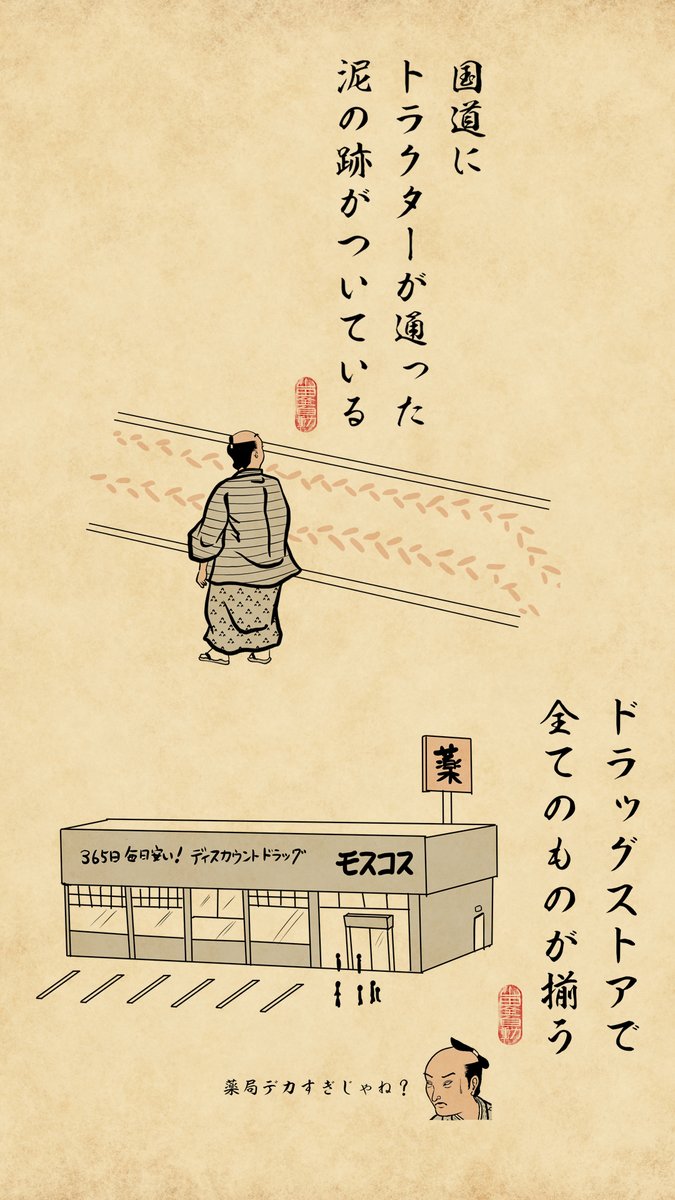 国道に
トラクターが通った
泥の跡がついている
ドラッグストアで
全てのものが揃う
薬
365日 毎日安い! ディスカウントドラッグ
モスコス
薬局デカすぎじゃね?